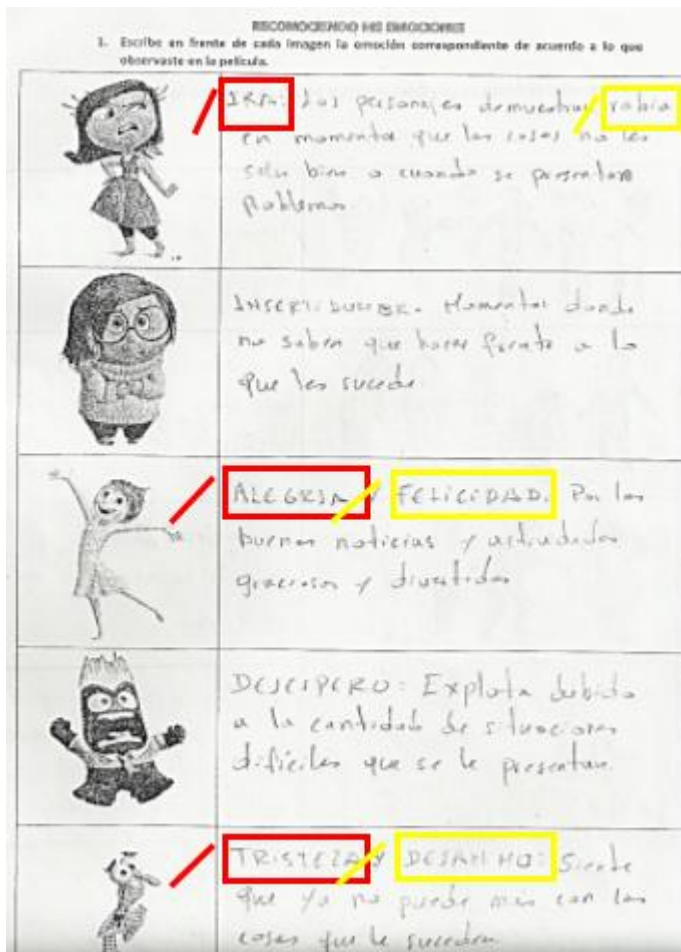 RECONOCIENDO MIS EMOCIONES
1. Escribe en frente de cada imagen la emoción correspondiente de acuerdo a lo que
observaste en la película.
IRA: Los personajes demuestran rabia
en momentos que las cosas no les
salen bien o cuando se presentan
problemas.
INSERTIDUMBRE. Momentos donde
no saben que hacer frente a lo
que les sucede
ALEGRIA Y FELICIDAD. Por las
buenas noticias y actividades
graciosas y divertidas
DESESPERO: Explota debido
a la cantidad de situaciones
difíciles que se le presentan.
TRISTEZA Y DESANIMO: Siente
que ya no puede más con las
cosas que le suceden